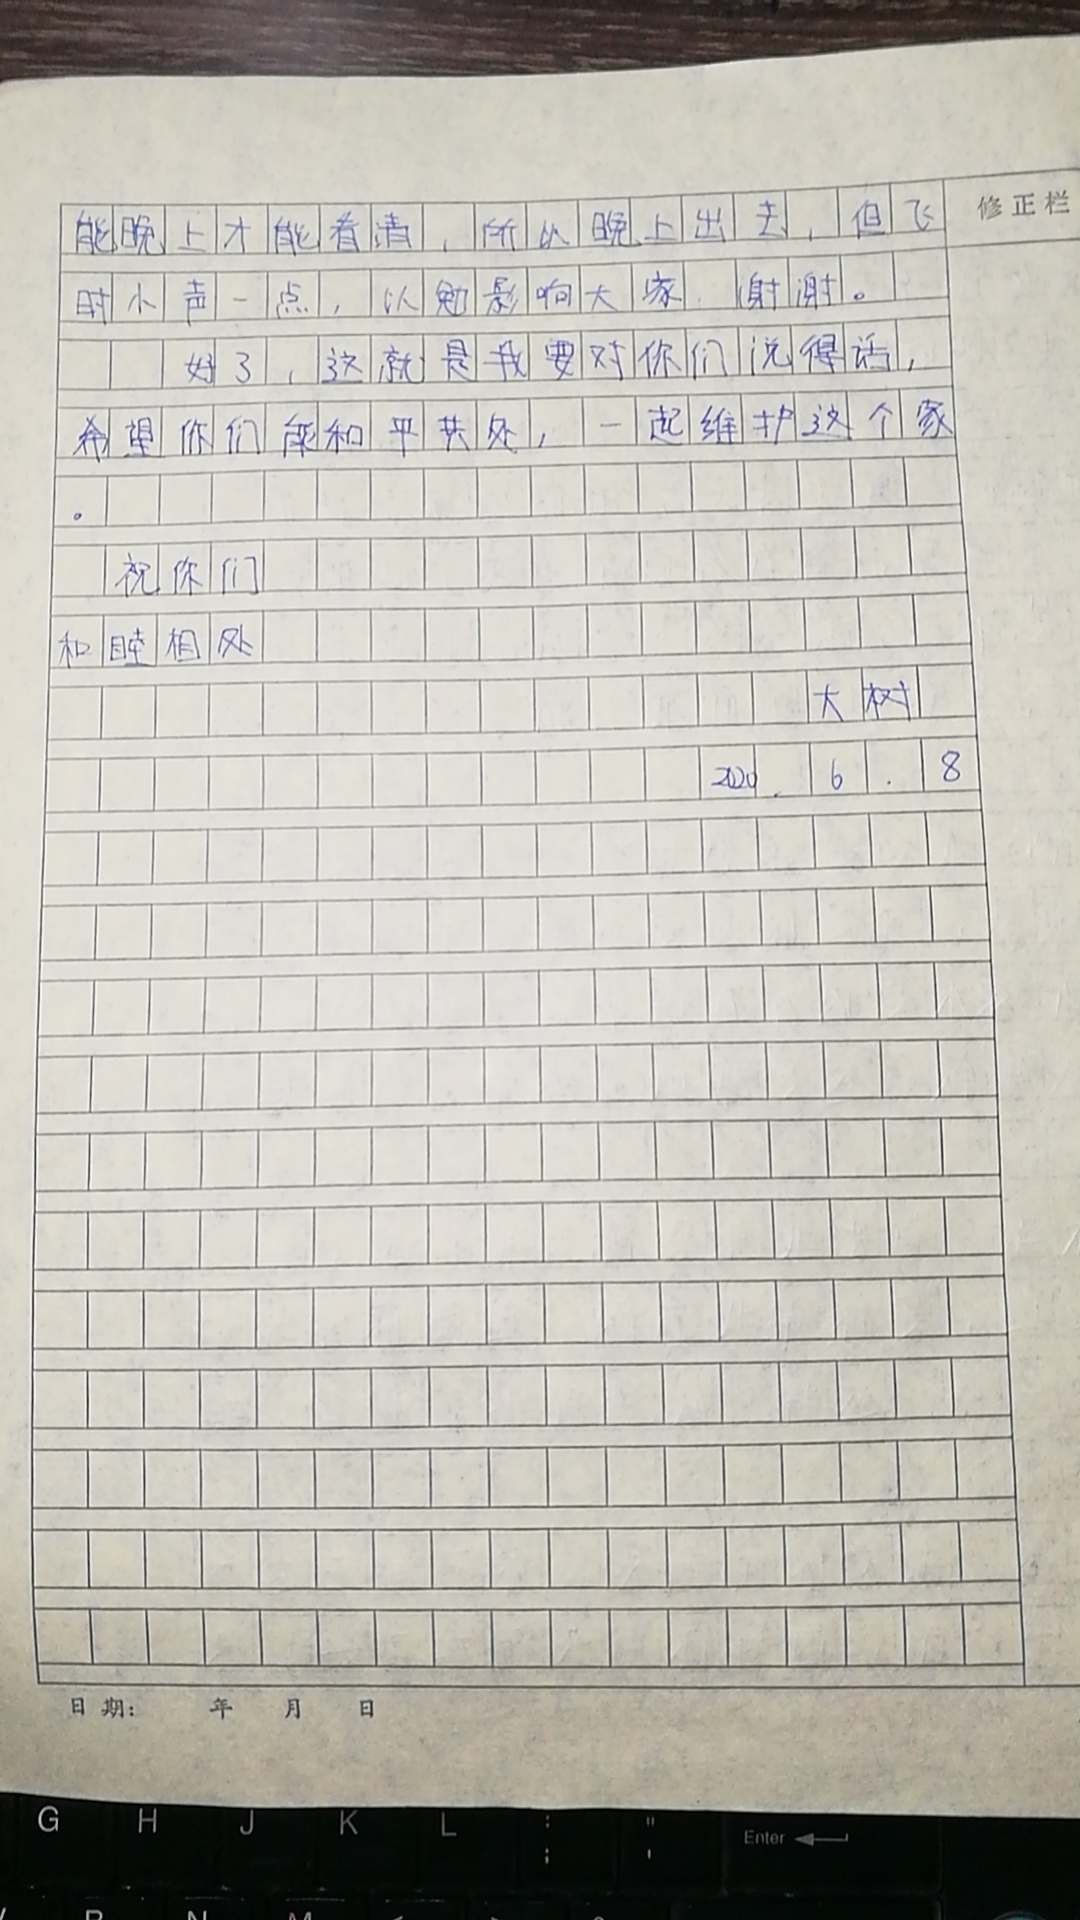 能晚上才能看清，所以晚上出去，但飞
修正栏
时小声一点，以勉影响大家，谢谢。
好了，这就是我要对你们说得话，
希望你们能和平共处，一起维护这个家
。
祝你们
和睦相处
大树
2020.6.8
日期： 年 月 日
G H J K L : ; " ' Enter